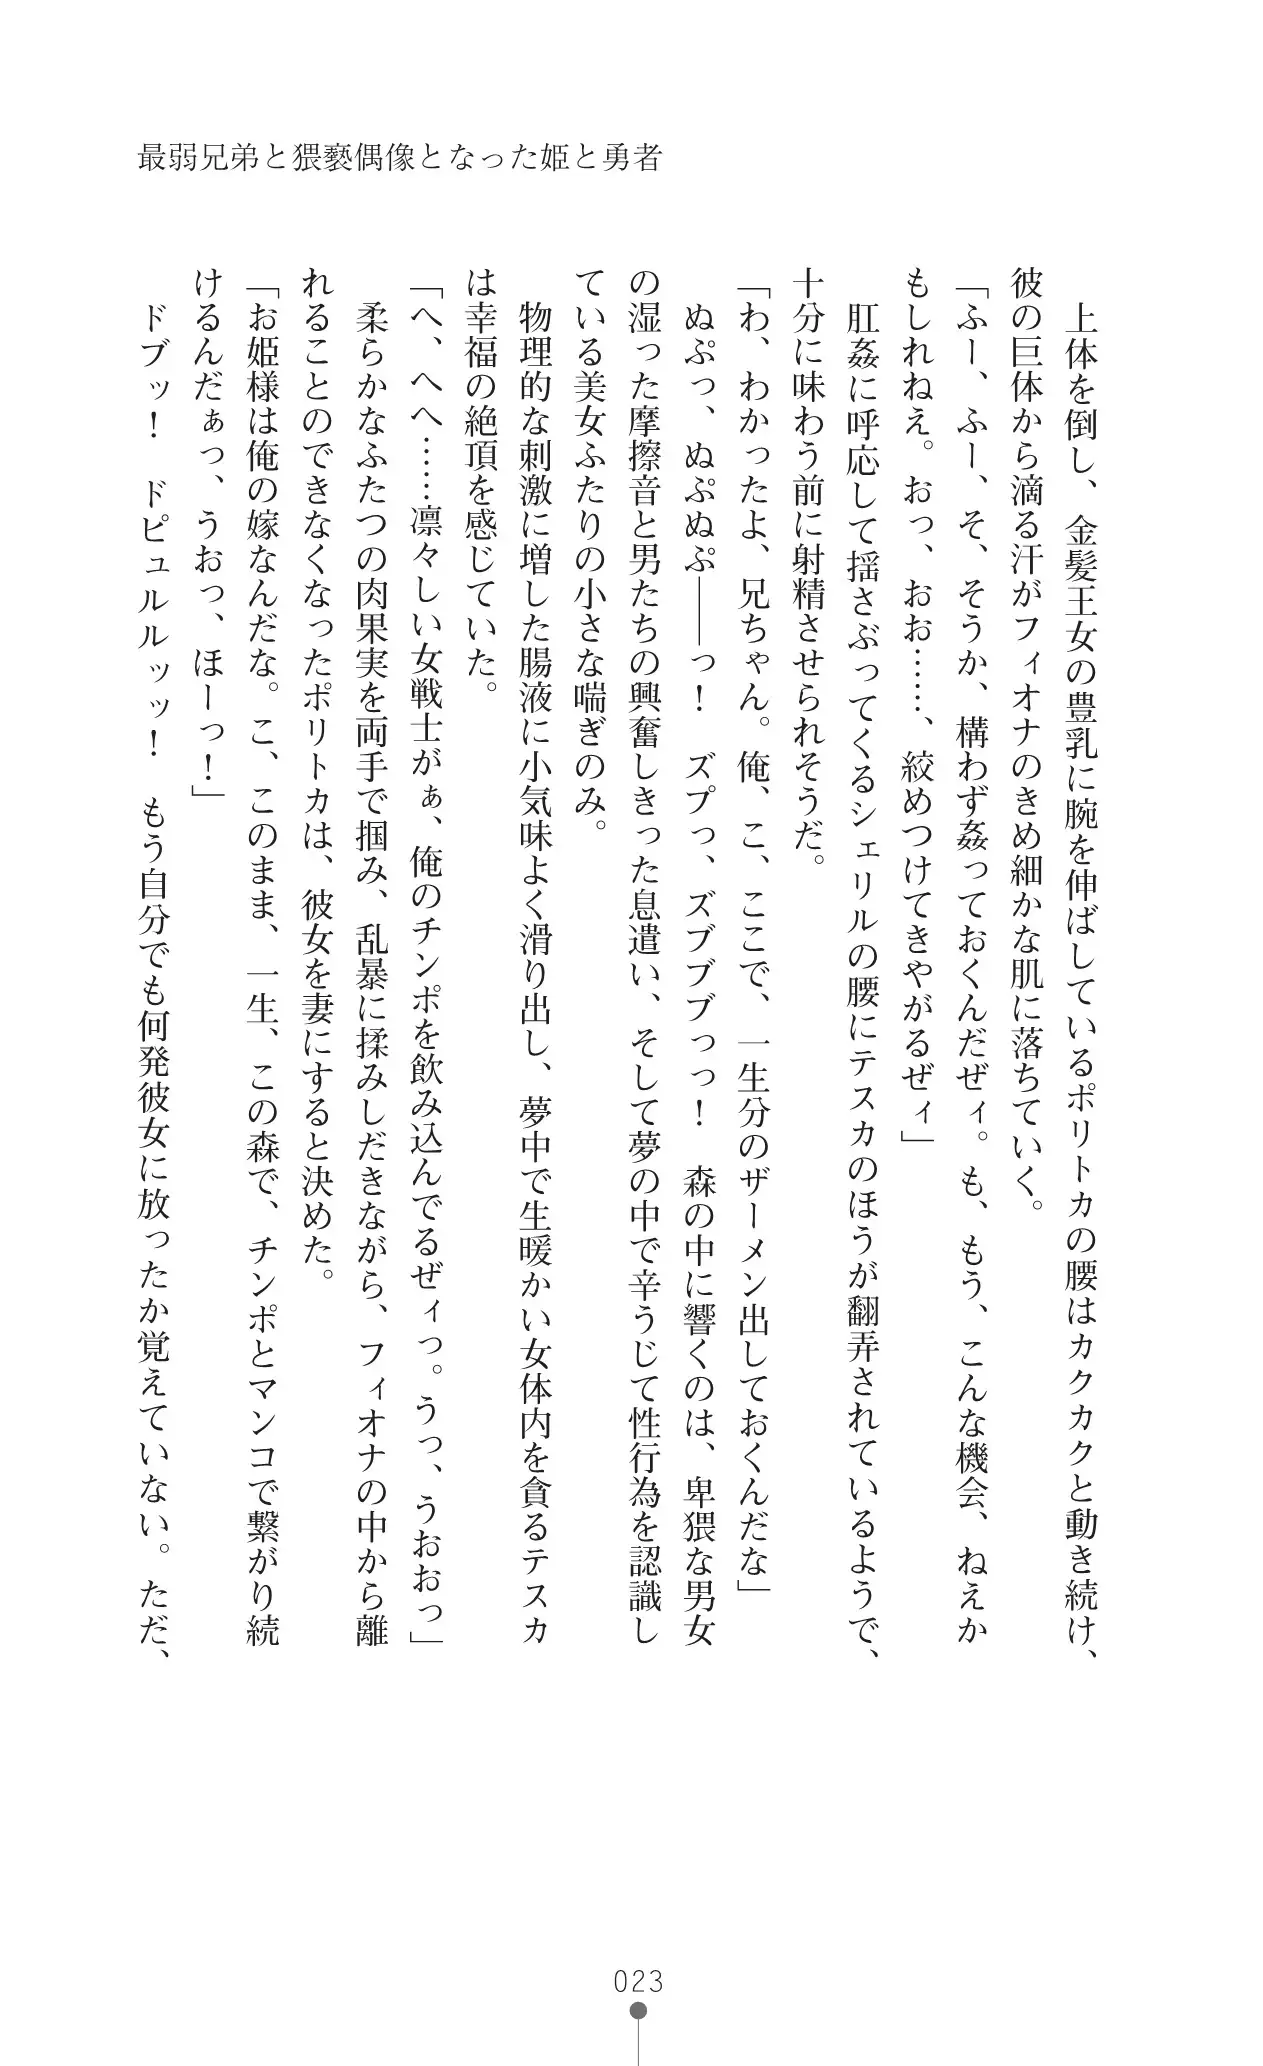 最弱兄弟と猥褻偶像となった姫と勇者
　上体を倒し、金髪王女の豊乳に腕を伸ばしているポリトカの腰はカクカクと動き続け、
彼の巨体から滴る汗がフィオナのきめ細かな肌に落ちていく。
「ふー、ふー、そ、そうか、構わず姦っておくんだぜィ。も、もう、こんな機会、ねえか
もしれねえ。おっ、おお……、絞めつけてきやがるぜィ」
　肛姦に呼応して揺さぶってくるシェリルの腰にテスカのほうが翻弄されているようで、
十分に味わう前に射精させられそうだ。
「わ、わかったよ、兄ちゃん。俺、こ、ここで、一生分のザーメン出しておくんだな」
　ぬぷっ、ぬぷぬぷ――っ！　ズプっ、ズブブブっっ！　森の中に響くのは、卑猥な男女
の湿った摩擦音と男たちの興奮しきった息遣い、そして夢の中で辛うじて性行為を認識し
ている美女ふたりの小さな喘ぎのみ。
　物理的な刺激に増した腸液に小気味よく滑り出し、夢中で生暖かい女体内を貪るテスカ
は幸福の絶頂を感じていた。
「へ、へへ……凛々しい女戦士がぁ、俺のチンポを飲み込んでるぜィっ。うっ、うおおっ」
　柔らかなふたつの肉果実を両手で掴み、乱暴に揉みしだきながら、フィオナの中から離
れることのできなくなったポリトカは、彼女を妻にすると決めた。
「お姫様は俺の嫁なんだな。こ、このまま、一生、この森で、チンポとマンコで繋がり続
けるんだぁっ、うおっ、ほーっ！」
　ドブッ！　ドピュルルッッ！　もう自分でも何発彼女に放ったか覚えていない。ただ、
023